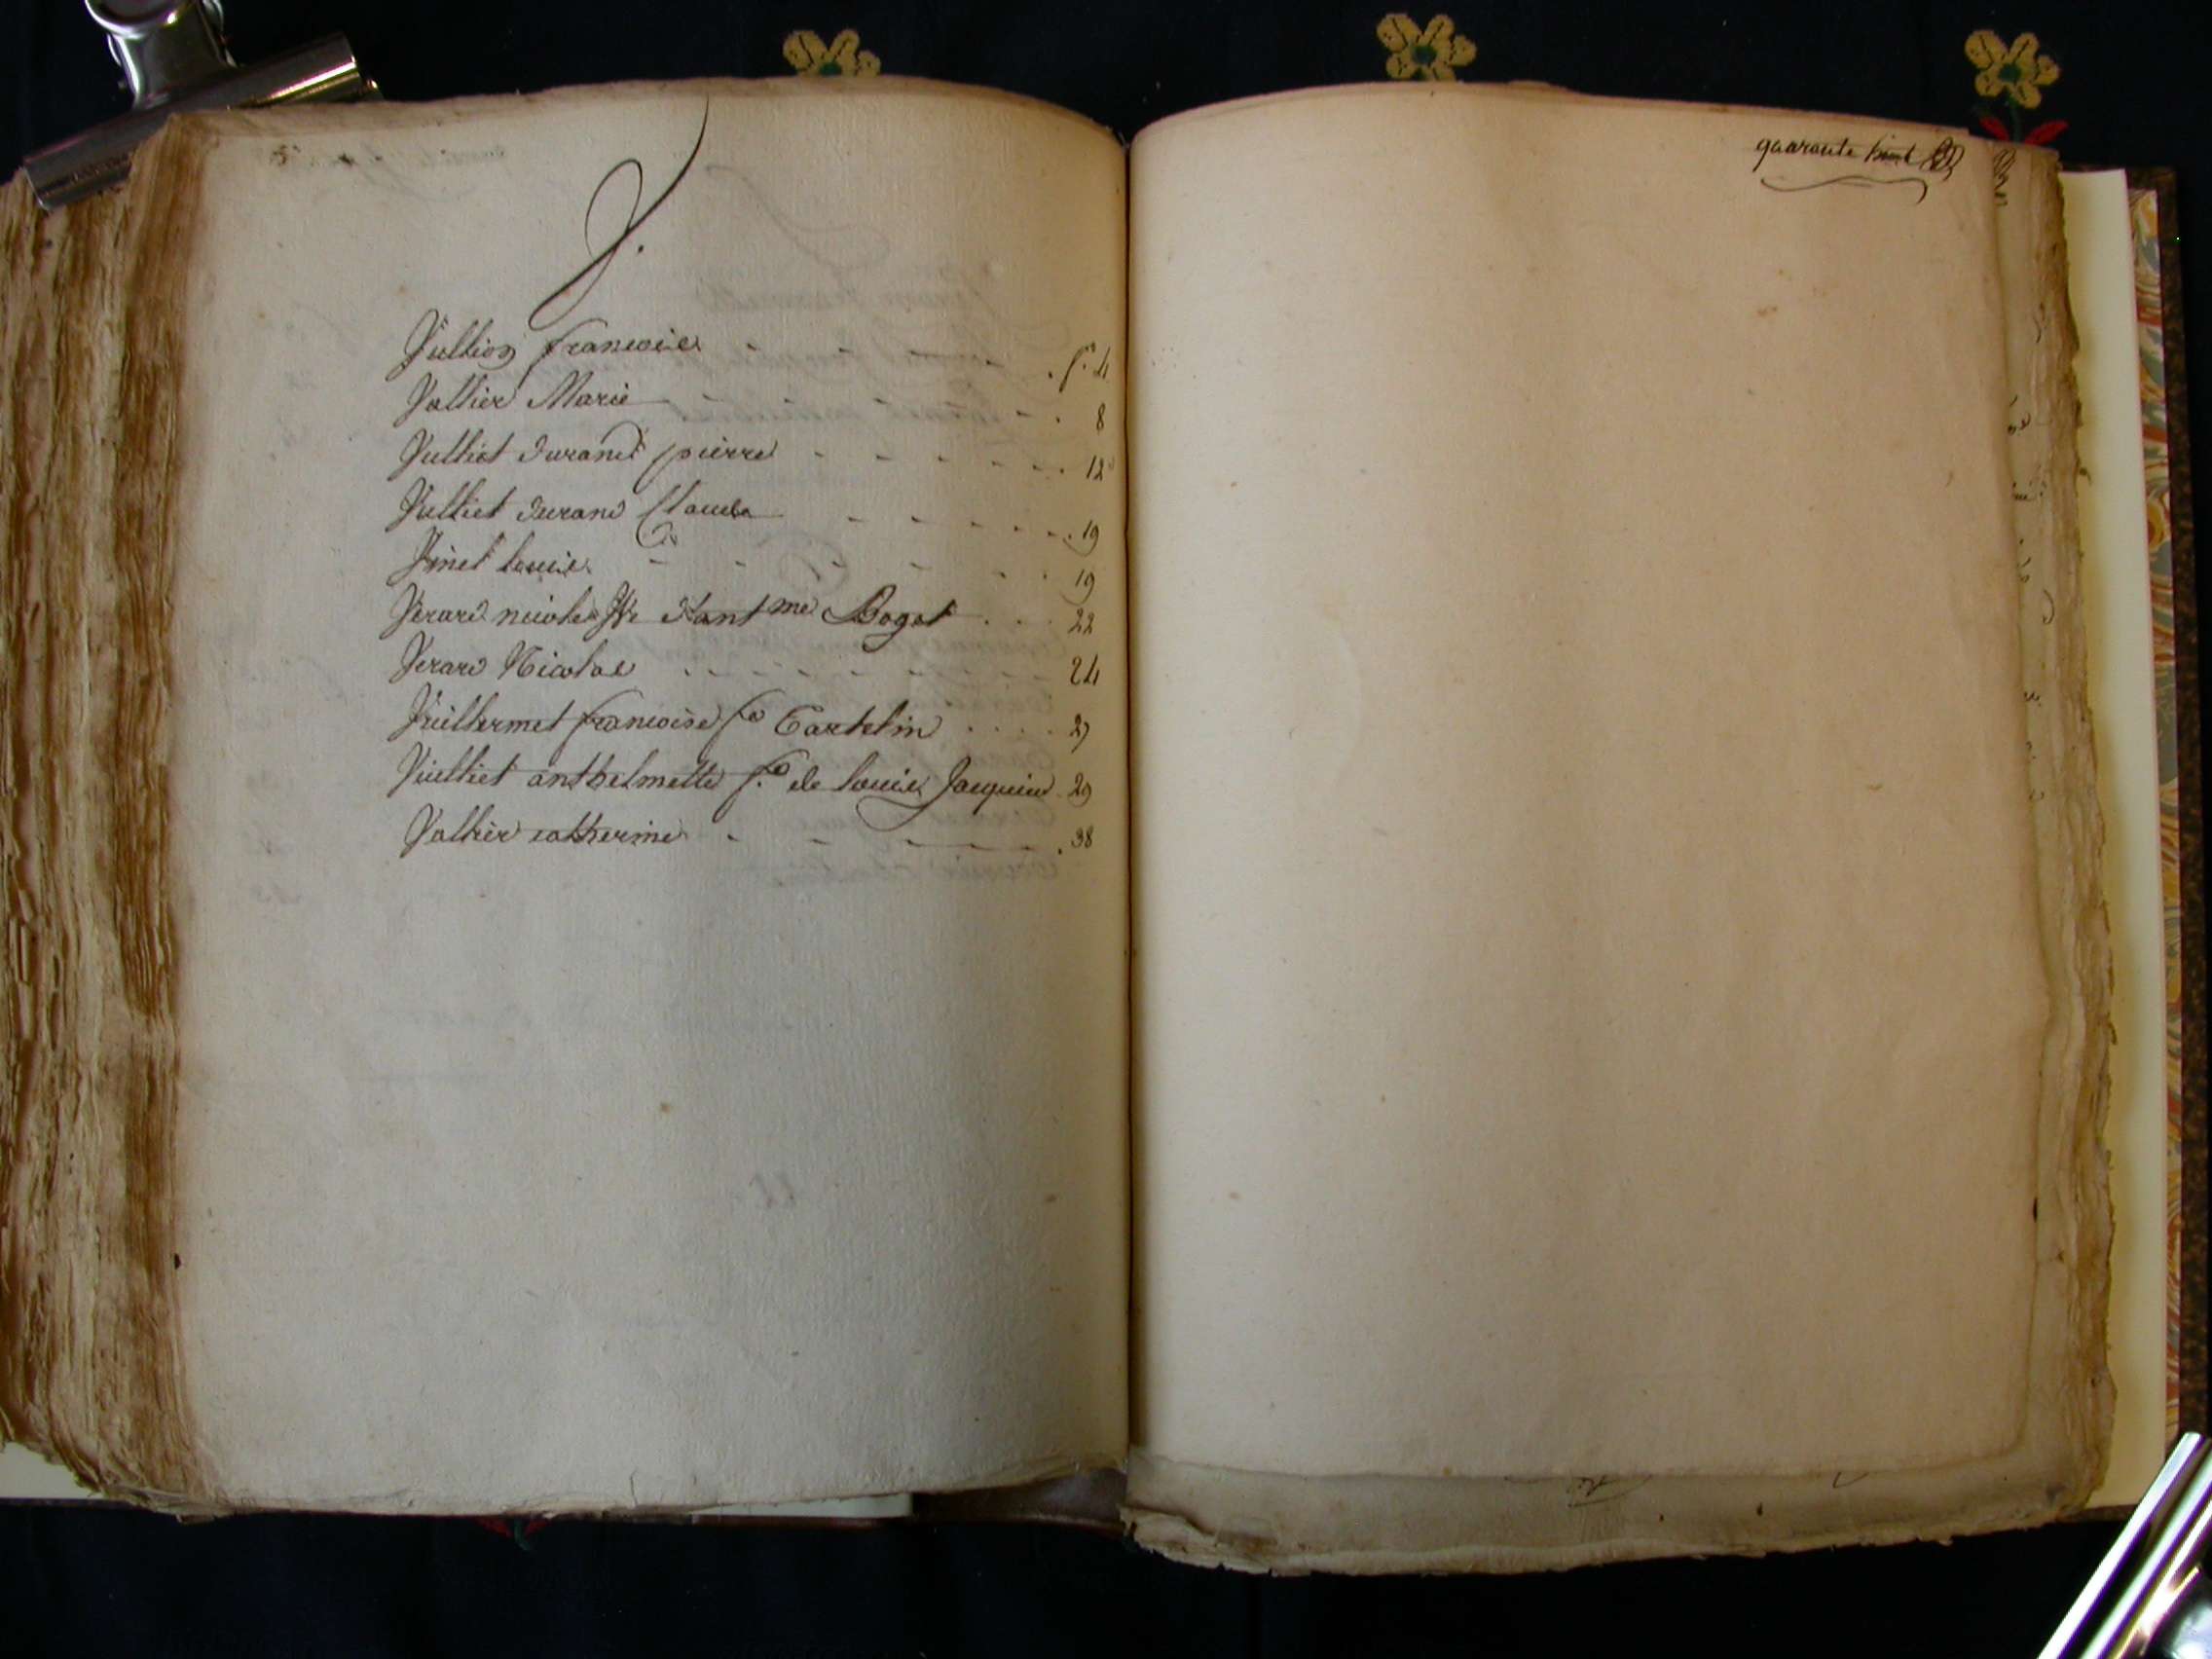 V.
Vullioz francois - - - . f.° 4
Vallier Marie - - . 8
Vulliet durand pierre - - - - - - . 12
Vulliet durand Claude - - - - - - . 19
Vinet louis - - - - - . 19
Verard Nicolas - - - - - - - - 24
Vuillermet francoise f.e Cartelin . . . . 27
Vuilliet anthelmette f.e de louis Jacquin 29
Vallier catherine - - - . 38
quarante huit